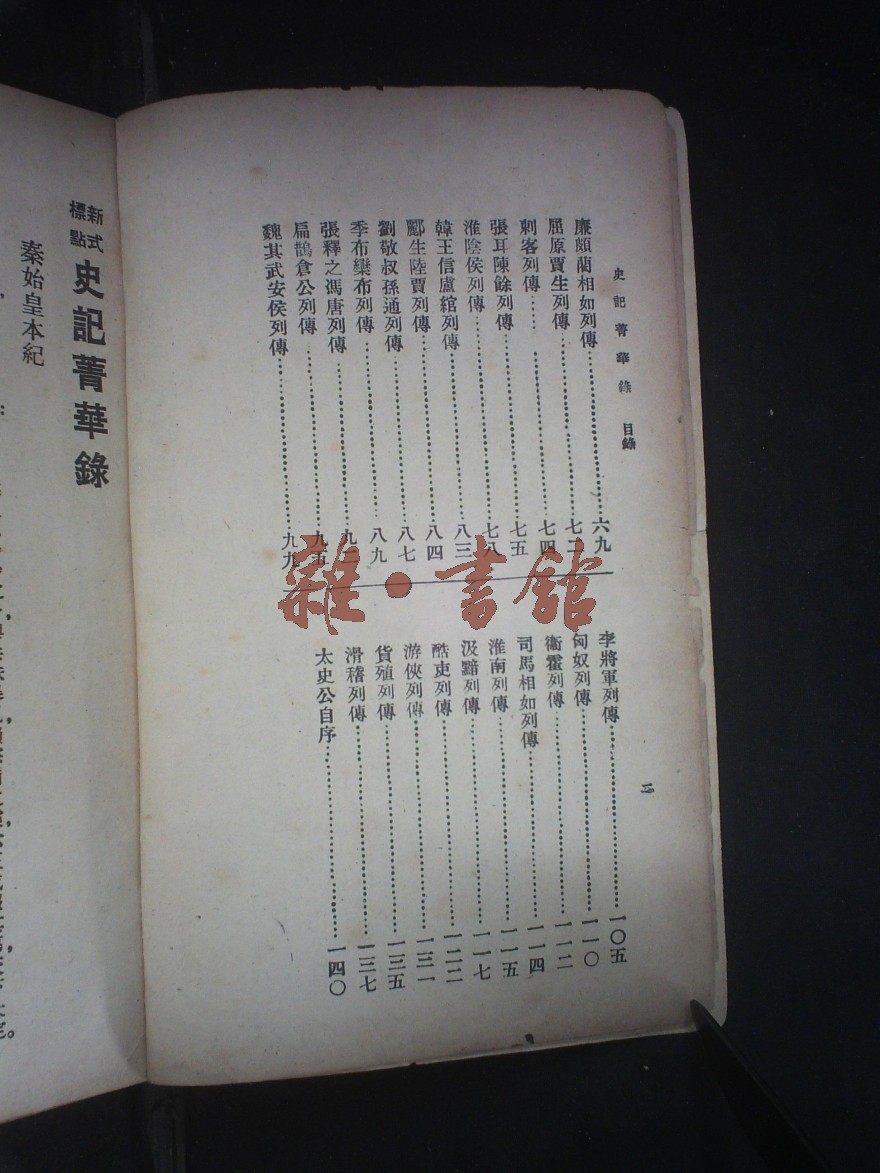 史記菁華錄 目錄
二
廉頗藺相如列傳……六九
屈原賈生列傳……七二
刺客列傳……七四
張耳陳餘列傳……七五
淮陰侯列傳……七八
韓王信盧綰列傳……八三
酈生陸賈列傳……八四
劉敬叔孫通列傳……八七
季布欒布列傳……八九
張釋之馮唐列傳……九
扁鵲倉公列傳……九五
魏其武安侯列傳……九九
李將軍列傳……一〇五
匈奴列傳……一一〇
衞霍列傳……一一二
司馬相如列傳……一一四
淮南列傳……一一五
汲黯列傳……一一七
酷吏列傳……一二二
游俠列傳……一三一
貨殖列傳……一三五
滑稽列傳……一三七
太史公自序……一四〇
新式標點 史記菁華錄
秦始皇本紀
雜·書館